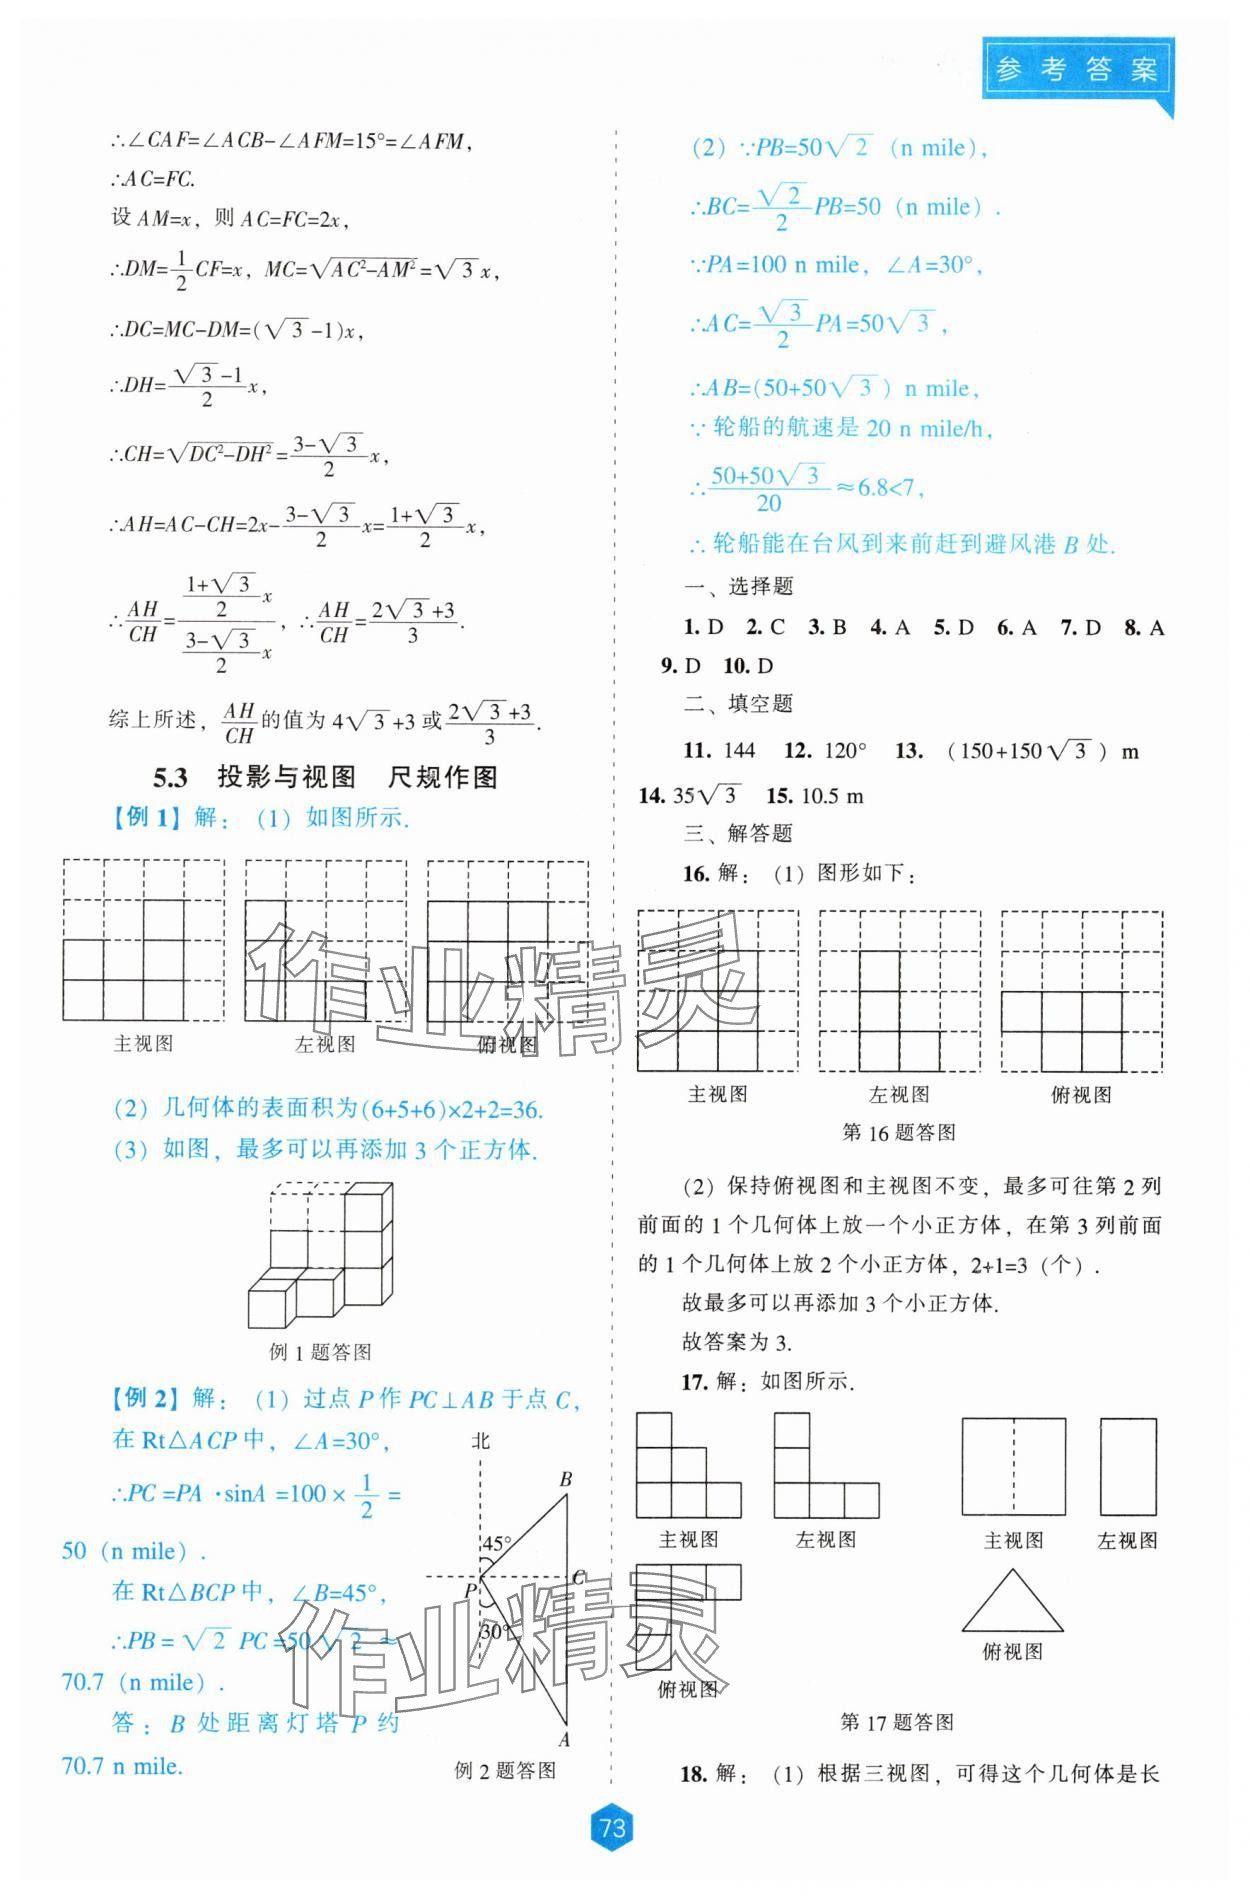 参考答案
∴∠CAF=∠ACB-∠AFM=15°=∠AFM,
∴AC=FC.
设 AM=x, 则 AC=FC=2x,
∴DM=1/2 CF=x, MC=√(AC²-AM²)=√3 x,
∴DC=MC-DM=(√3-1)x,
∴DH=(√3-1)/2 x,
∴CH=√(DC²-DH²)=(3-√3)/2 x,
∴AH=AC-CH=2x-(3-√3)/2 x=(1+√3)/2 x,
∴AH/CH=((1+√3)/2 x)/((3-√3)/2 x), ∴AH/CH=(2√3+3)/3.
综上所述, AH/CH 的值为 4√3+3 或 (2√3+3)/3.
5.3 投影与视图 尺规作图
【例 1】解: (1) 如图所示.
主视图 左视图 俯视图
(2) 几何体的表面积为(6+5+6)×2+2=36.
(3) 如图, 最多可以再添加 3 个正方体.
例 1 题答图
【例 2】解: (1) 过点 P 作 PC⊥AB 于点 C,
在 Rt△ACP 中, ∠A=30°,
∴PC=PA·sinA=100×1/2=
50 (n mile).
在 Rt△BCP 中, ∠B=45°,
∴PB=√2 PC=50√2≈
70.7 (n mile).
答: B 处距离灯塔 P 约
70.7 n mile.
北
B
45°
P
C
30°
A
例 2 题答图
(2) ∵PB=50√2 (n mile),
∴BC=√2/2 PB=50 (n mile).
∵PA=100 n mile, ∠A=30°,
∴AC=√3/2 PA=50√3,
∴AB=(50+50√3) n mile,
∵轮船的航速是 20 n mile/h,
∴(50+50√3)/20≈6.8<7,
∴轮船能在台风到来前赶到避风港 B 处.
一、选择题
1. D 2. C 3. B 4. A 5. D 6. A 7. D 8. A
9. D 10. D
二、填空题
11. 144 12. 120° 13. (150+150√3) m
14. 35√3 15. 10.5 m
三、解答题
16. 解: (1) 图形如下:
主视图 左视图 俯视图
第 16 题答图
(2) 保持俯视图和主视图不变, 最多可往第 2 列
前面的 1 个几何体上放一个小正方体, 在第 3 列前面
的 1 个几何体上放 2 个小正方体, 2+1=3 (个).
故最多可以再添加 3 个小正方体.
故答案为 3.
17. 解: 如图所示.
主视图 左视图 主视图 左视图
俯视图
俯视图
第 17 题答图
18. 解: (1) 根据三视图, 可得这个几何体是长
73
作业精灵
作业精灵